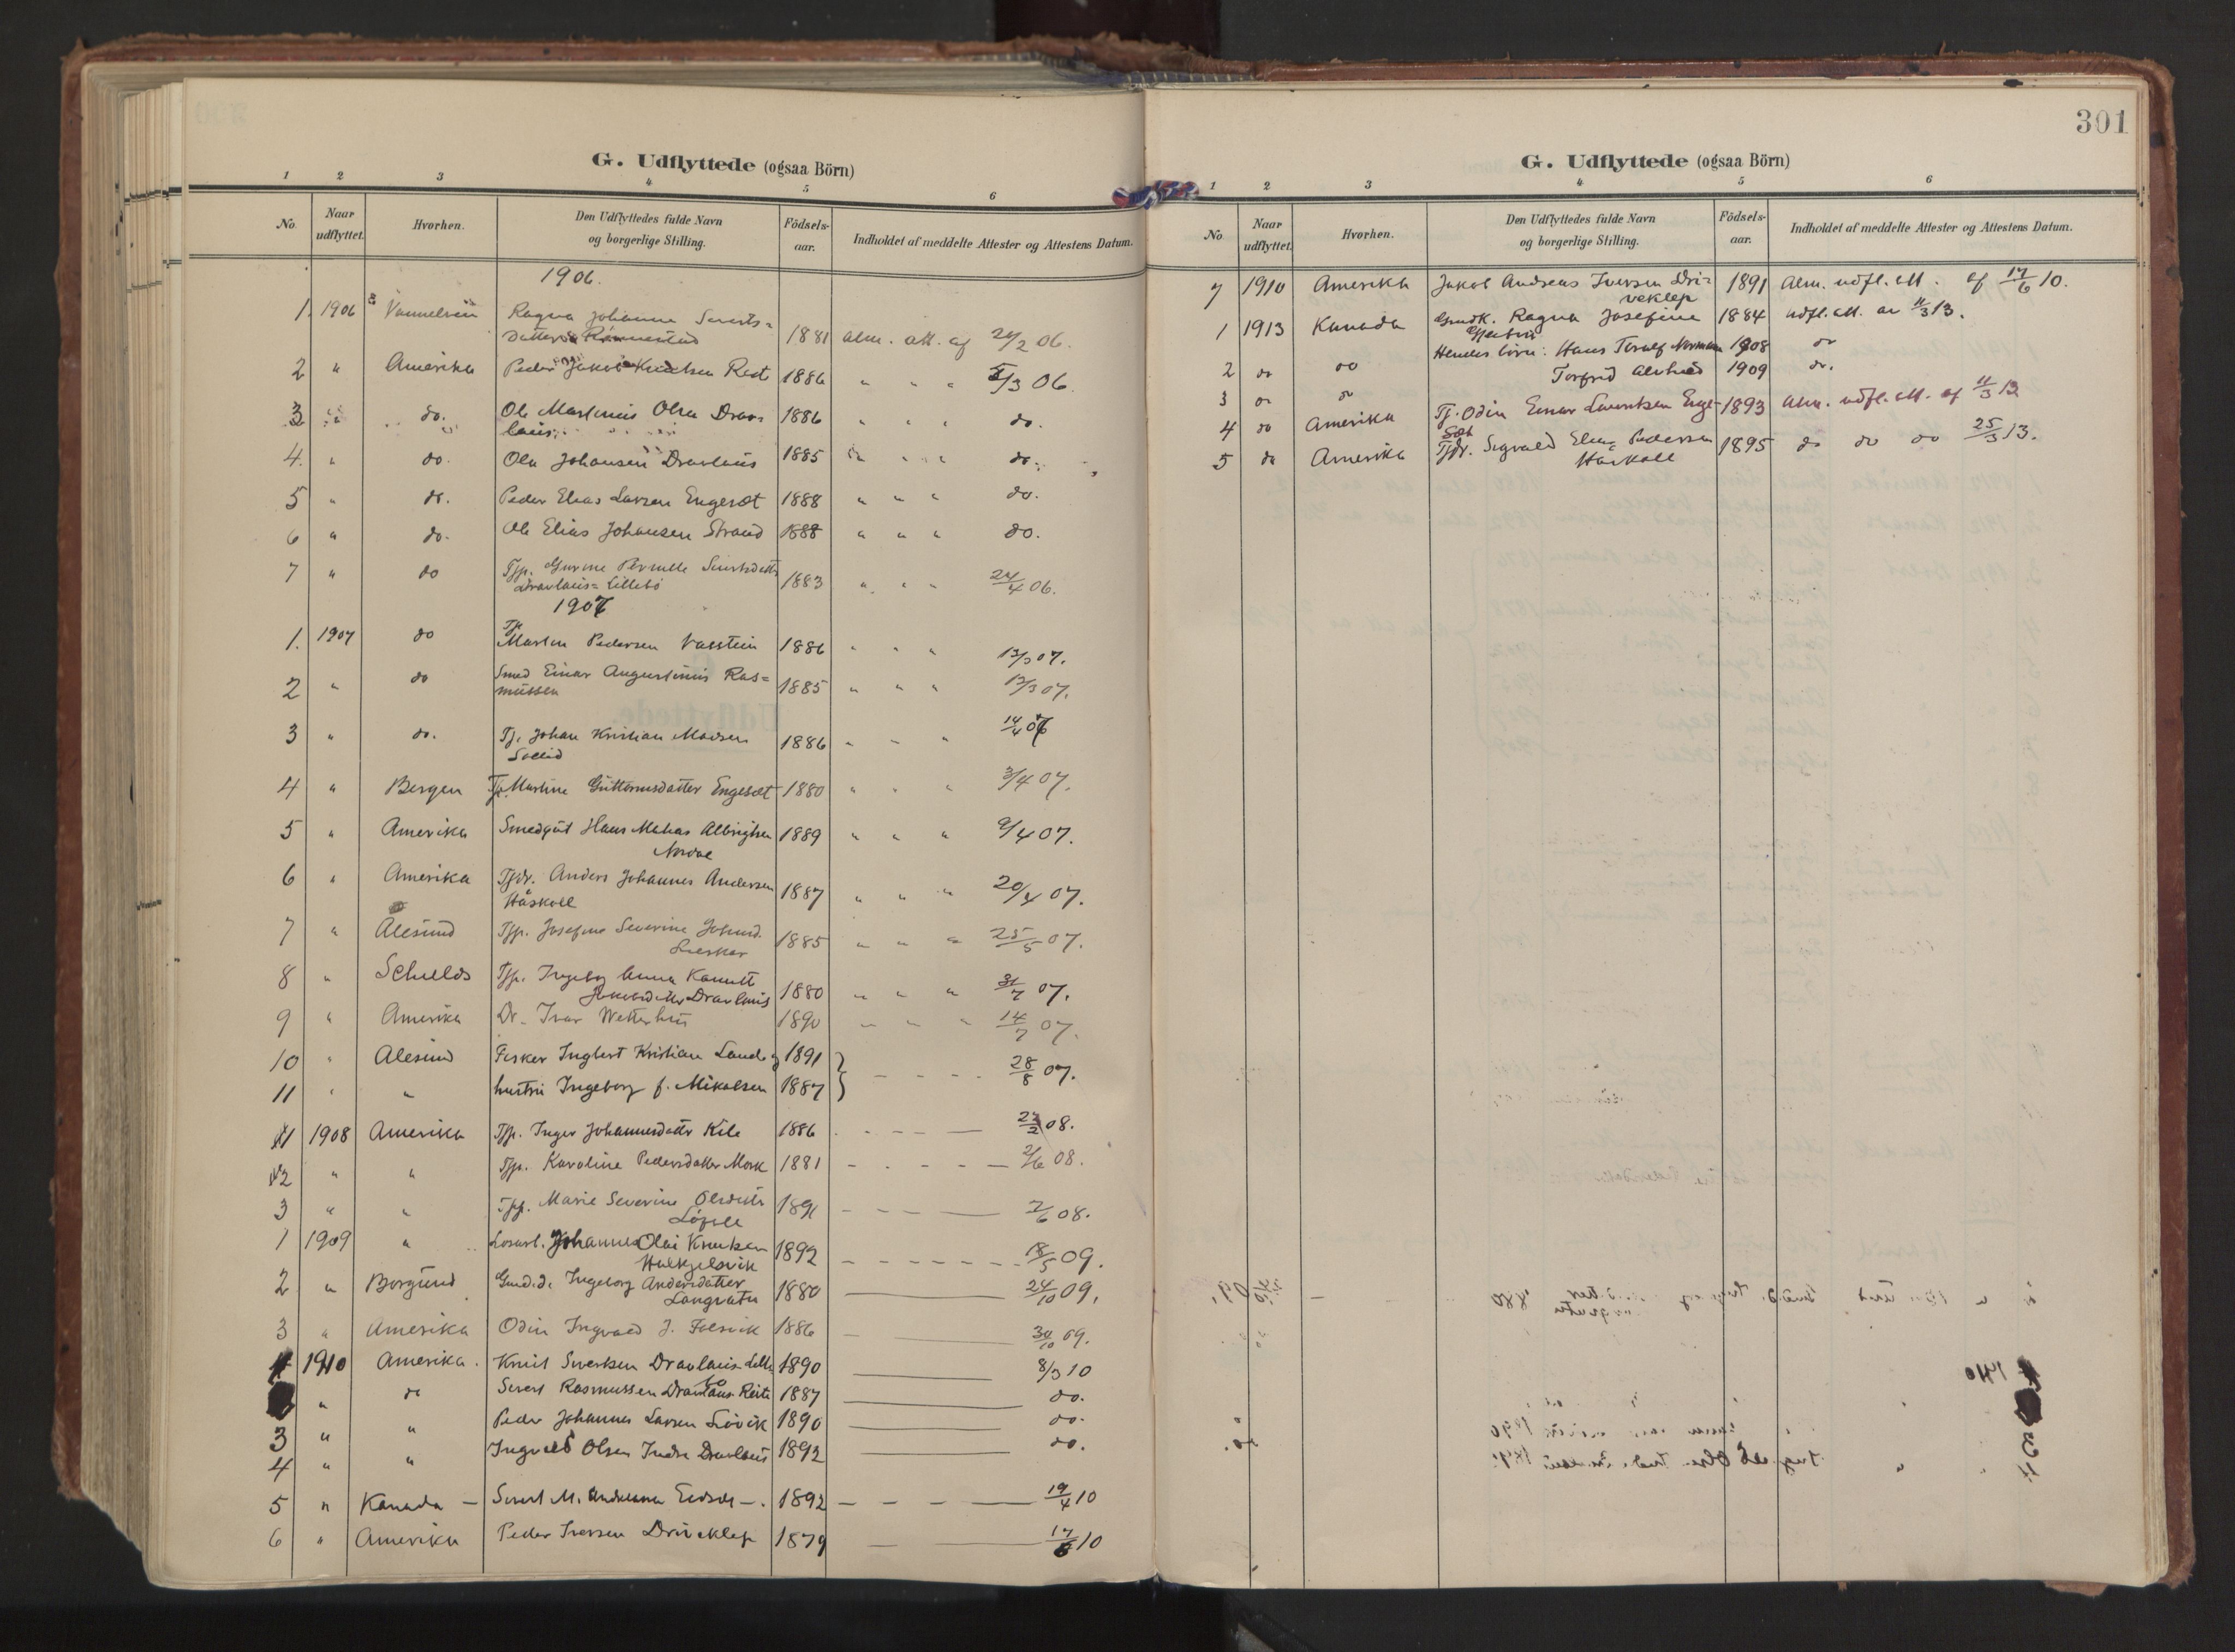 G. Udflyttede (ogsaa Börn)
1 2 3 4 5 6
No. Naar udflyttet. Hvorhen. Den Udflyttedes fulde Navn og borgerlige Stilling. Födsels-aar. Indholdet af meddelte Attester og Attestens Datum.
1906.
1. 1906 Vannelven Ragna Johanne Siverts=
datter 1881 alm. att. af 24/2 06.
2 " Amerika Peder Jakob Knudsen Reite 1886 " " " 5/3 06.
3 " do. Ole Martinus Olsen Drav
laus 1886 " " " do.
4. " do. Ole Johansen Dravlaus 1885 " " " do.
5 " do. Peder Elias Larsen Engeset 1888 " " " do.
6 " do. Ole Elias Johansen Strand 1888 " " " do.
7 " do Tjp. Gurine Pernille Sivertsdatter
Dravlaus=Lillebö 1883 " " " 24/4 06.
1907
1. 1907 do Tj. Martin Pedersen Vasstein 1886 " " " 13/3 07.
2 " do Smed Einar Augustinus Ras=
mussen 1885 " " " 13/3 07.
3 " do. Tj. Johan Kristian Madsen
Sollid 1886 " " " 14/4 07
4 " Bergen Tjp. Martine Guttormsdatter Engeset 1880 " " " 3/4 07.
5 " Amerika Smedgut Hans Mathias Albrigtsen
Nordal 1889 " " " 9/4 07.
6 " Amerika Tjdr. Anders Johannes Andersen
Håskoll 1887 " " " 20/4 07.
7 " Ålesund Tjp. Josefine Severine Johnsd.
1885 " " " 25/5 07.
8 " Tjp. Ingeborg Anna
Jakobsdatter Dravlaus 1880 " " " 31/7 07.
9 " Amerika Dr. Ivar Wetterhus 1890 " " " 14/7 07.
10 " Ålesund Fisker Ingbert Kristian Lande og 1891 } - - - - 28/8 07.
11 " " hustru Ingeborg f. Mikalsen 1887 }
1 1908 Amerika Tjp. Inger Johannesdatter Kile 1886 - - - - 08.
2 " " Tjp. Karoline Pedersdatter Mork 1881 - - - - 2/6 08.
3 " " Tjp. Marie Severine Olsdatter
1891 - - - 2/6 08.
1 1909 " Losarb. Johannes Olai Knutsen
Hulkjelsvik 1892 - - - - - 18/5 09.
2 " Borgund Gmd.d. Ingeborg Andersdatter
Langvatn 1880 24/10 09.
3 " Amerika Odin Ingvald J. Folsvik 1886 30/10 09.
1910 Amerika. Knut Sivertsen Dravlaus-Lille
bö 1890 8/3 10
" do Sivert Rasmussen Dravlaus-Reite 1887 do.
3 " " Peder Johannes Larsen Lövik 1890 do.
4 " " Ingvald Olsen Indre Dravlaus 1892 do.
5 " Kanada - Sivert M. Andreasen Eidset -. 1892 - - - 19/4 10
6 " Amerika Peder Iversen Driveklep 1879 - 17/6 10
301
G. Udflyttede (ogsaa Börn)
1 2 3 4 5 6
No. Naar udflyttet. Hvorhen. Den Udflyttedes fulde Navn og borgerlige Stilling. Födsels-aar. Indholdet af meddelte Attester og Attestens Datum.
7 1910 Amerika Jakob Andreas Iversen Dri=
veklep 1891 Alm. udfl. att. af 17/6 10.
1 1913 Kanada Gmdk. Ragna Josefine 1884 udfl. att. av 11/3 13.
2 do do Hendes børn: Hans Toralf Norman 1908 do
3 do do Torfrid 1909 do.
4 do Amerika Tj. Odin Einar Lauritsen Enge-
set 1893 Alm. udfl. att. af 11/3 13
5 do Amerika Tjdr. Sigvald Elias Pedersen
Håskoll 1895 do do do 25/3 13.